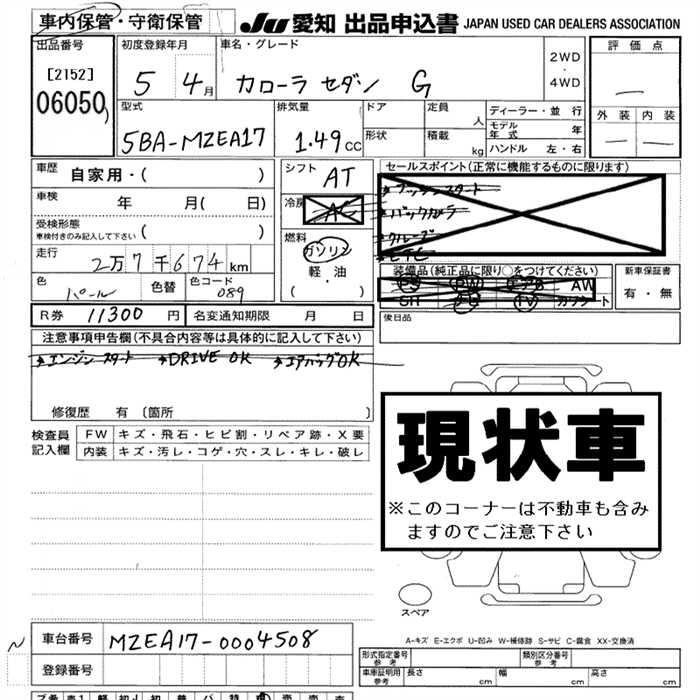 車内保管・守衛保管
JU 愛知 出品申込書 JAPAN USED CAR DEALERS ASSOCIATION
出品番号
[2152]
06050
初度登録年月
5 4月
車名・グレード
カローラ セダン G
2WD
・
4WD
評価点
—
外装 内装
— —
型式
5BA-MZEA17
排気量
1.49CC
ドア
形状
定員
人
積載
kg
ディーラー・並行
モデル年式 年
ハンドル 左・右
車歴 自家用・( )
車検 年 月( 日)
受検形態
車検付きのみ記入して下さい ( )
走行
2万7千674km
色
パール
色替
色コード
089
シフト
AT
冷房
AC
燃料
ガソリン
軽・油
( ・ )
セールスポイント(正常に機能するものに限ります)
→プッシュスタート
→バックカメラ
→クルーズ
→ETC
装備品(純正品に限り○をつけてください)
PS PW エアB AW
SH ナビ TV カワシート
新車保証書
有・無
R券 11300円 名変通知期限 月 日
後日品
注意事項申告欄(不具合内容等は具体的に記入して下さい)
→エンジンスタート →DRIVE OK →エアバッグOK
修復歴 有 〔箇所 〕
検査員
記入欄
FW キズ・飛石・ヒビ割・リペア跡・X要
内装 キズ・汚レ・コゲ・穴・スレ・キレ・破レ
現状車
※このコーナーは不動車も含み
ますのでご注意下さい
スペア
A-キズ E-エクボ U-凹み W-補修跡 S-サビ C-腐食 XX-交換済
車台番号 MZEA17-0004508
登録番号
形式指定番号
参考
類別区分番号
参考
車庫証明用
参考
長さ cm 幅 cm 高さ cm